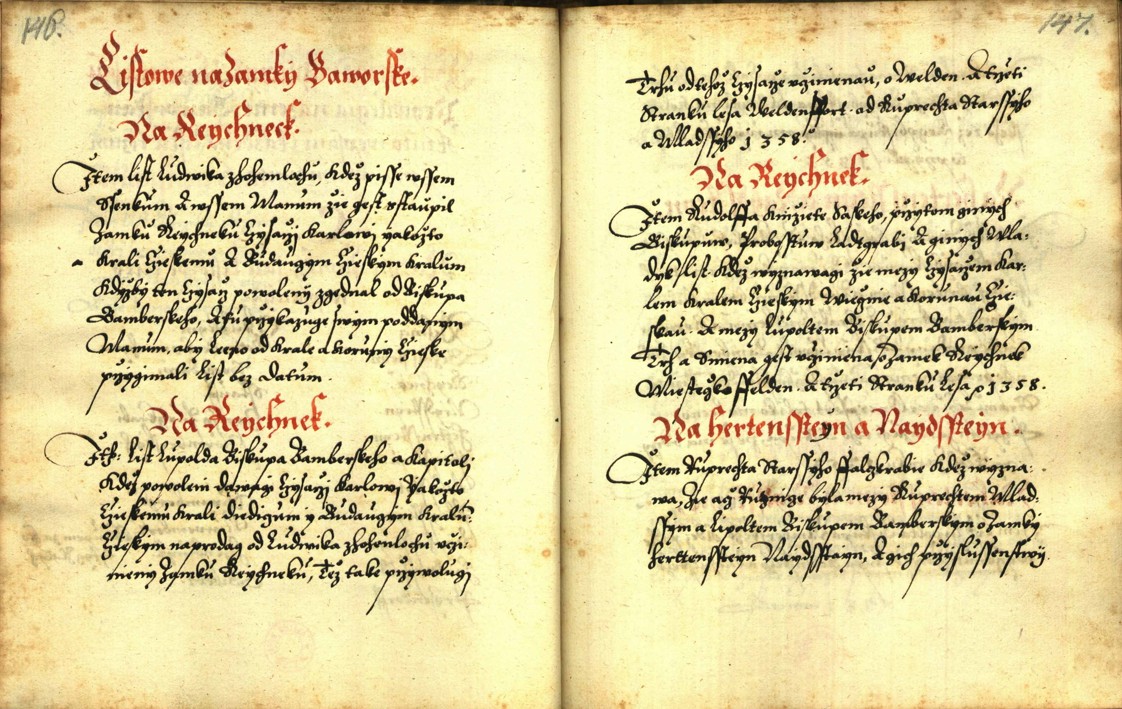 146.
Listowe na Zamky Baworske.
Na Reychneck.
Item list Ludwika z Hohemlachu, Kdež pisse wssem
Ssenkum A wssem Manum že gest pstaupil
Zamku Reychneku Czysarzi Karlowi yakožto
Krali Czieskemu A Budaugym Czieskym Kralum
Kdyžby ten Czysarz powoleny zgednal od Biskupa
Bamberskeho, A tu przykazuge swym poddanym
Manum, aby Leeno od Krale a Koruny Czieske
przygimali List bez Datum.
Na Reychnek.
Itē: List Lupolda Biskupa Bamberskeho a Kapitoli
Kdež powolein dawagi Czysarzi Karlowi Yakožto
Czieskemu Krali Diedigum y Budaugym Kralū:
Czieskym na prodag od Ludwika z Hohenlochu vczi:
nieny Zamku Reychneku, Též take przywolugi
147.
Trhu od tehož Czysarze vcziinenau, o Welden. A trzeti
Stranku lesa Weldenffort. od Ruprechta Starssyho
a Mladssyho 1358.
Na Reychnek.
Item Rudolffa Knižete Saskeho, przytom ginych
Biskupuw, Probosstuw Ladtgrabi A ginych Wla:
dyk list Kdež wyznawagi že mezy Czysarzem Kar:
lem Kralem Czieskym Wiegnie a Korunau Czie:
skau. A mezy Lupoltem Biskupem Bamberskym
Trh a Smena gest vcziniena, o Zamek Reychnek
Miesteczko ffelden. A trzeti Stranku Lesa, 1358.
Na Hertenssteyn a Naydssteyn.
Item Ruprechta Starssyho ffalczkrabie Kdež wyzna:
wa, že acz Ruznige byla mezy Ruprechtem Mlad:
ssym a Lipoltem Biskupem Bamberskym o Zamky
Herttenssteyn Naydssteyn, A gich przyslussenstwij